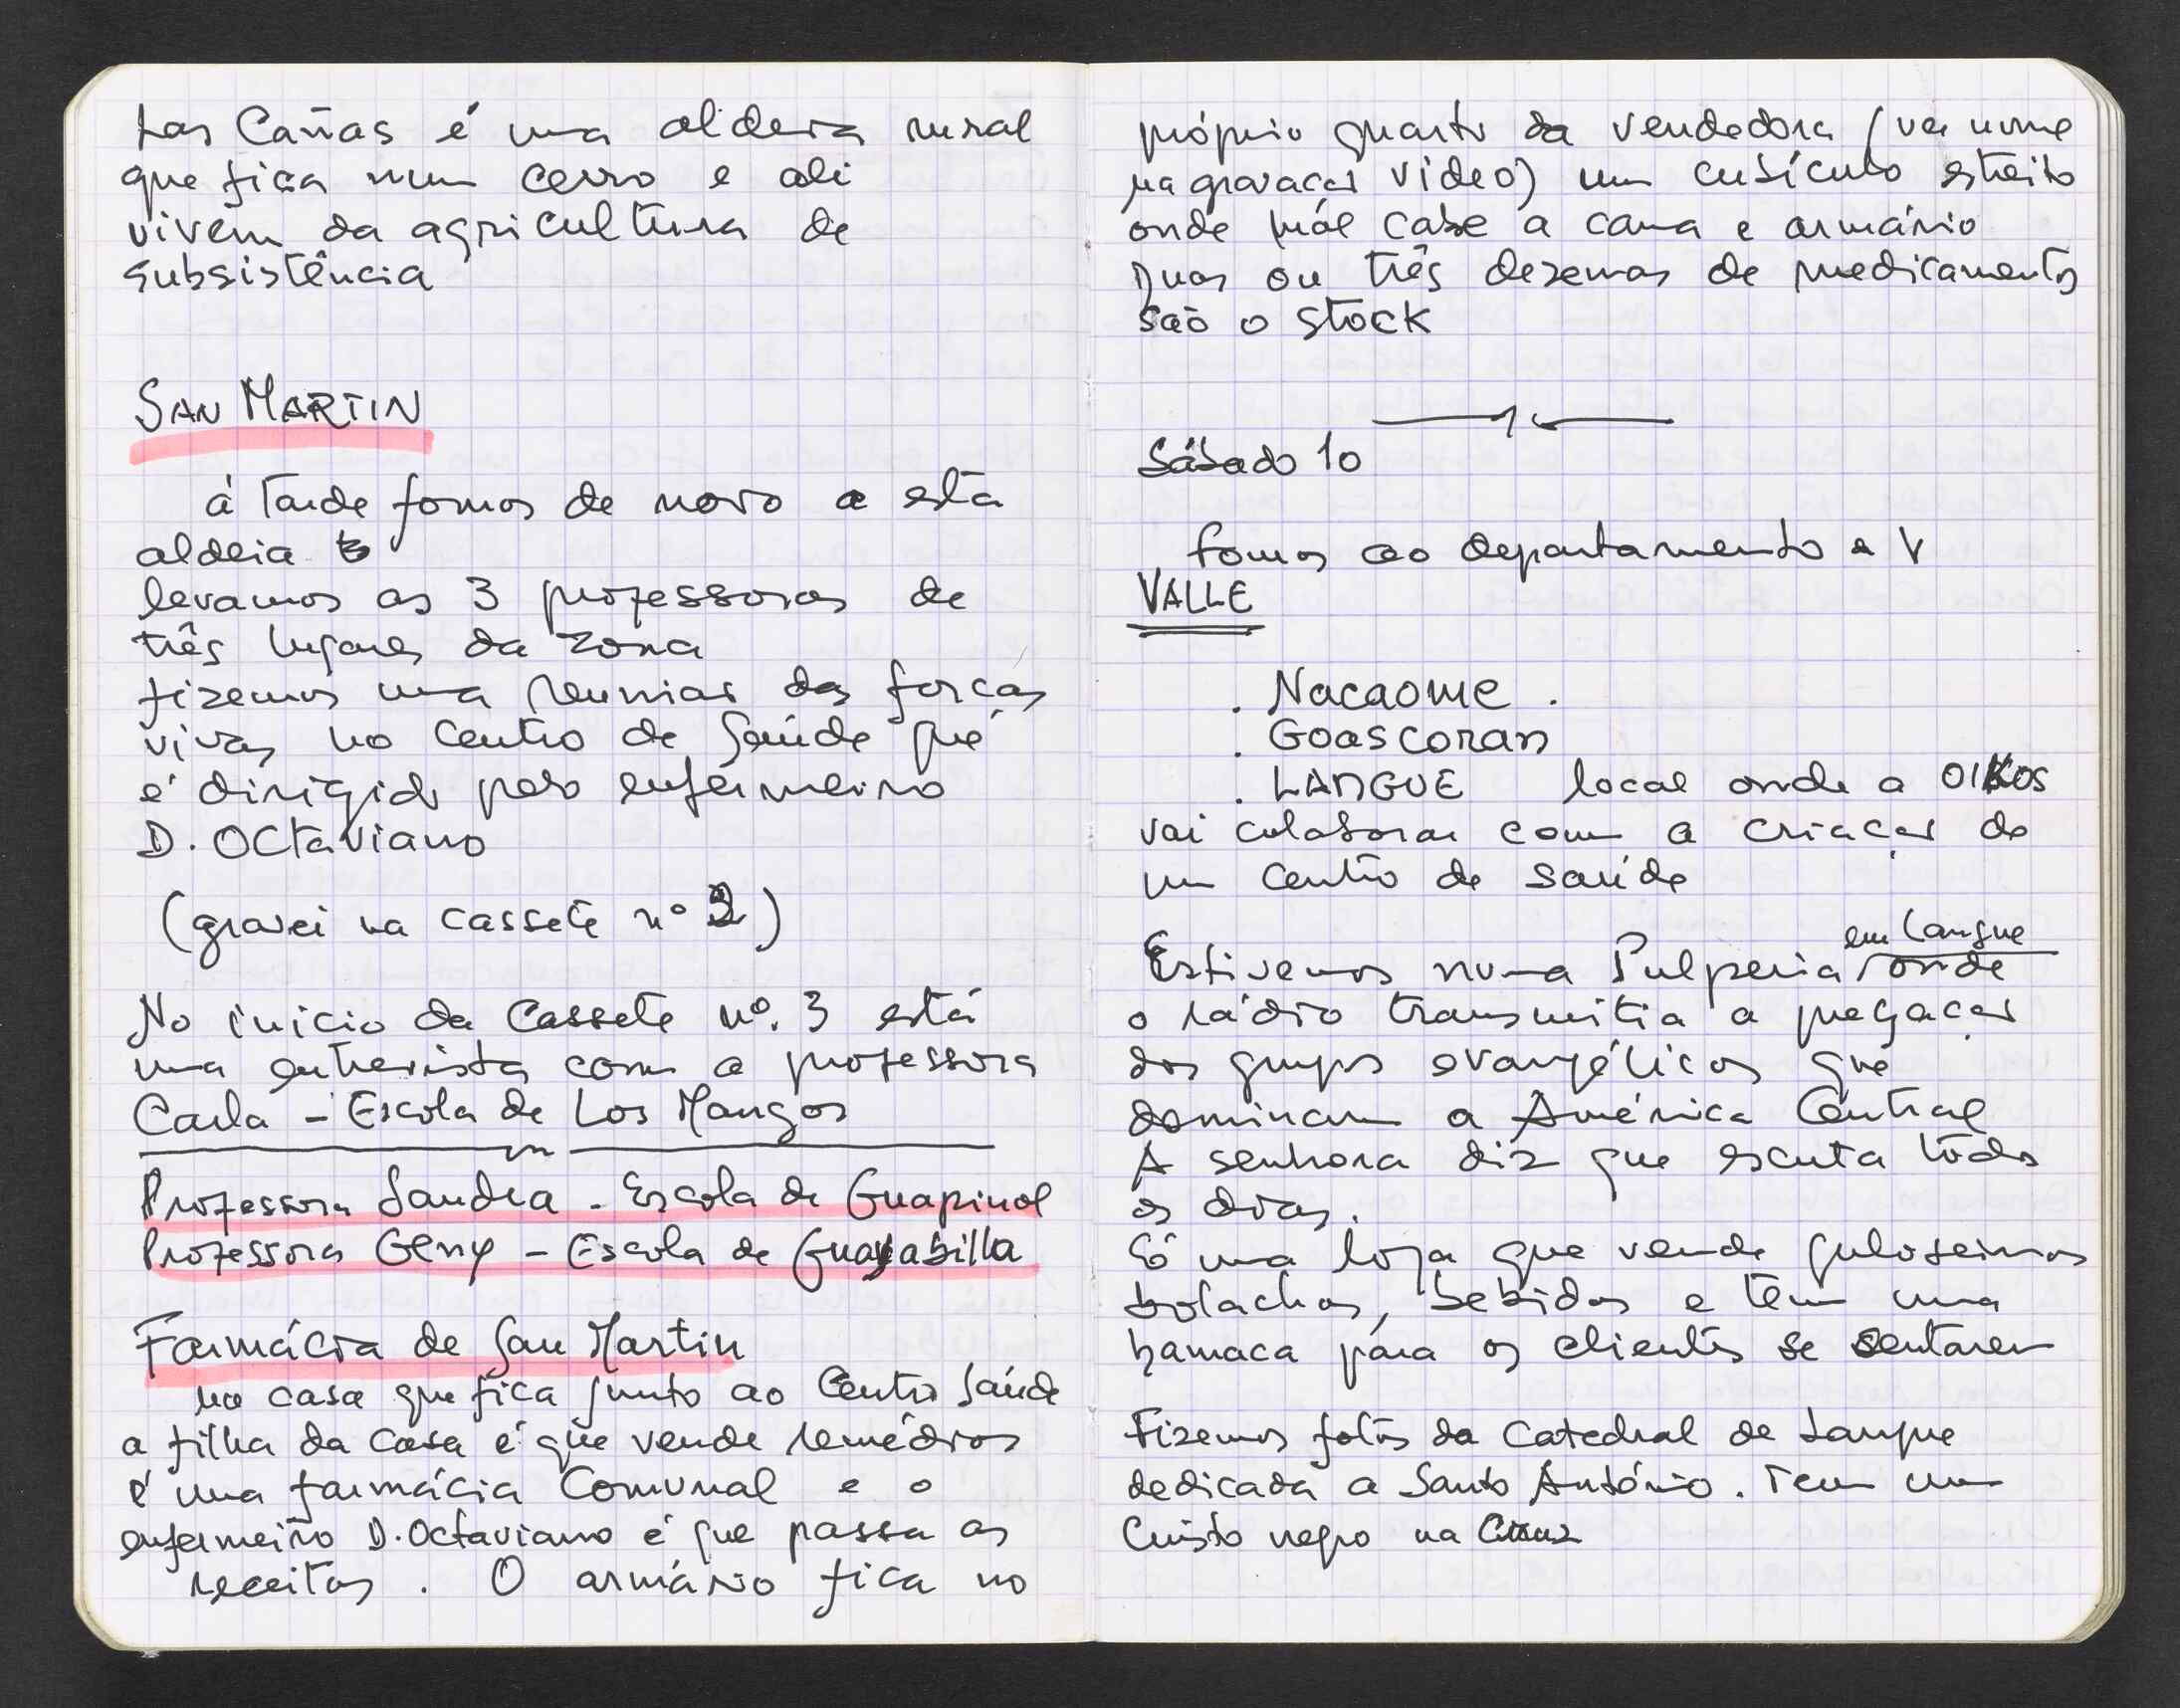 Las Cañas é uma aldeia rural
que fica num cerro e ali
vivem da agricultura de
subsistência
SAN MARTIN
á tarde fomos de novo a esta
aldeia
levamos as 3 professoras de
três lugares da zona
fizemos uma reunião das forças
vivas no centro de Saúde que
é dirigido pelo enfermeiro
D. Octaviano
(gravei na cassete nº 2)
No início da Cassete nº. 3 está
uma entrevista com a professora
Carla - Escola de Los Mangos
Professora Sandra - Escola de Guapinol
Professora Geny - Escola de Guayabilla
Farmácia de San Martin
na casa que fica junto ao Centro Saúde
a filha da casa é que vende remédios
é uma farmácia Comunal e o
enfermeiro D. Octaviano é que passa as
receitas. O armário fica no
próprio quarto da vendedora (ver nome
na gravação video) um cubículo estreito
onde mál cabe a cama e armário
Duas ou três dezenas de medicamentos
são o stock
Sábado 10
Fomos ao departamento a V
VALLE
. Nacaome .
. Goascoran
. LANGUE local onde a OIKOS
vai colaborar com a criação de
um centro de saúde
em Langue
Estivemos numa Pulperia onde
o rádio transmitia a pregação
dos grupos evangélicos que
dominam a América Central
A senhora diz que escuta todos
os dias.
Só uma loja que vende guloseimas
bolachas, bebidas e tem uma
hamaca para os clientes se sentarem
Fizemos fotos da Catedral de Langue
dedicada a Santo António. Tem um
Cristo negro na Cruz